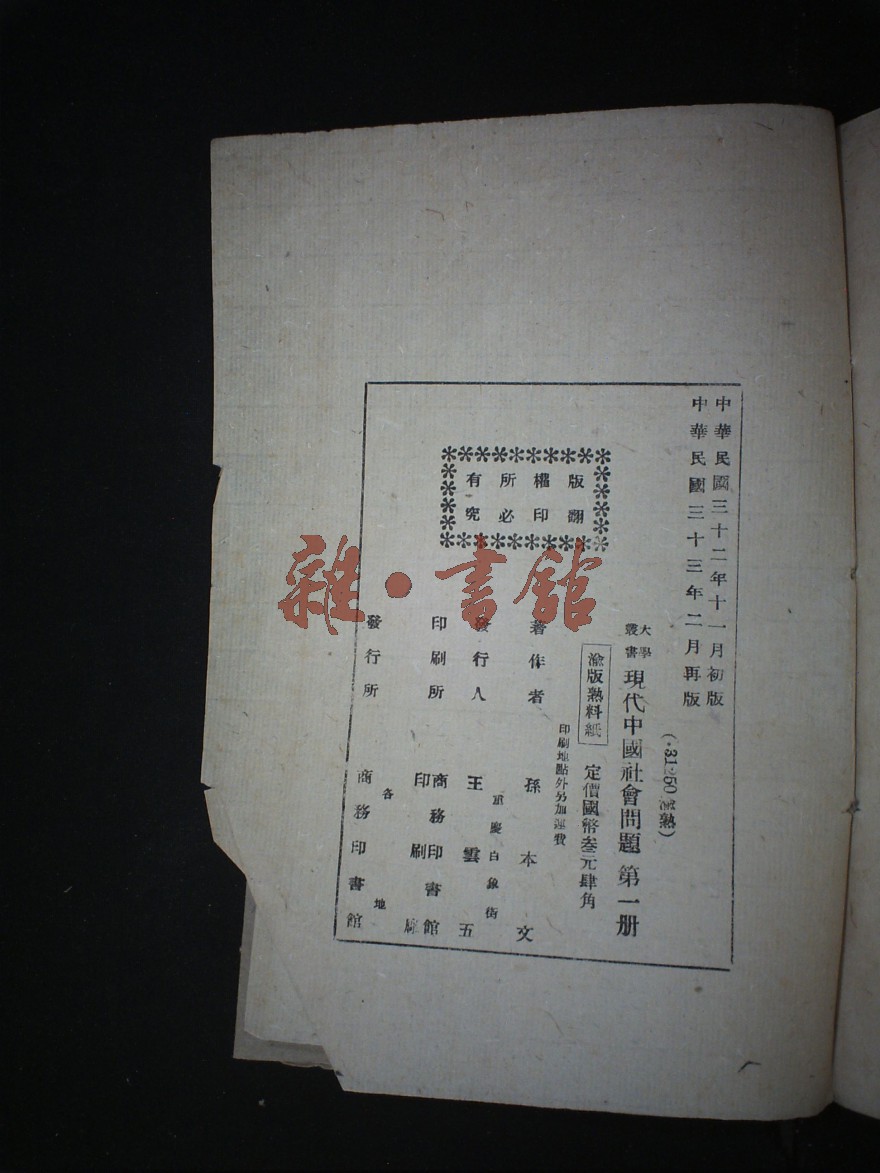 中華民國三十二年十一月初版
中華民國三十三年二月再版
大學叢書
現代中國社會問題 第一册
渝版熟料紙
定價國幣叁元肆角
印刷地點外另加運費
著作者 孫本文
發行人 王雲五
重慶白象街
印刷所 商務印書館印刷廠
發行所 商務印書館
各地
版權所有
翻印必究
雜·書館